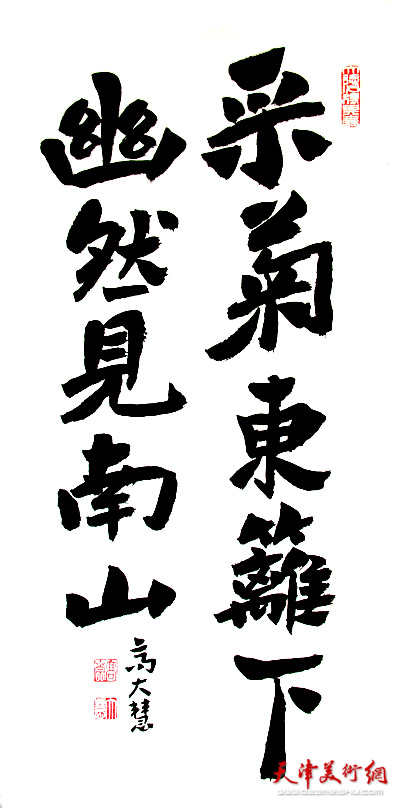 采菊東籬下
幽然見南山
高大慧
天津美術網
www.022meishu.com